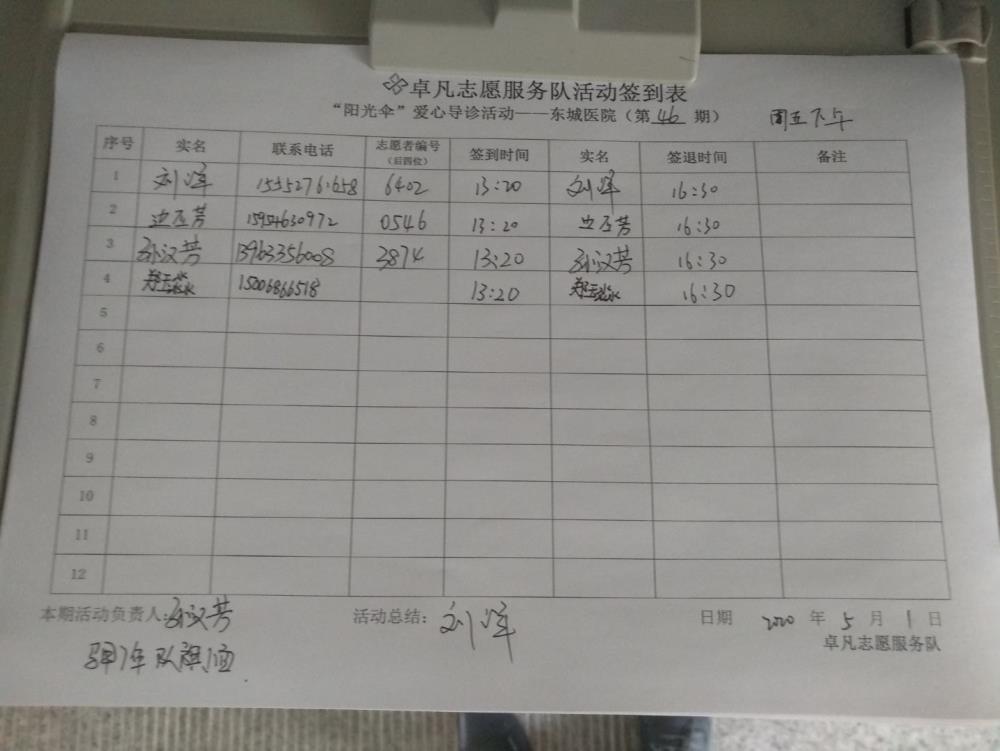 卓凡志愿服务队活动签到表
“阳光伞”爱心导诊活动——东城医院（第 46 期） 周五下午
序号 实名 联系电话 志愿者编号（后四位） 签到时间 实名 签退时间 备注
1 刘洋 6402 13:20 刘洋 16:30
2 15954630972 0546 13:20 16:30
3 孙汉芳 13963356008 3874 13:20 孙汉芳 16:30
4 15006866518 13:20 16:30
5
6
7
8
9
10
11
12
本期活动负责人:孙汉芳 活动总结: 刘洋 日期 2020 年 5 月 1 日
卓凡志愿服务队
队旗